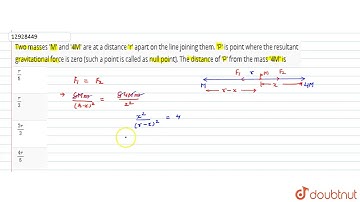 12928449
Two masses 'M' and '4M' are at a distance 'r' apart on the line joining them. 'P' is point where the resultant
gravitational force is zero (such a point is called as null point). The distance of 'P' from the mass '4M' is
r/5
r/3
2r/3
4r/5
F₁ = F₂
→ GMm/(r-x)² = G4Mm/x²
x²/(r-x)² = 4
F₁ r PM F₂
M 4M
r-x x
doubtnut